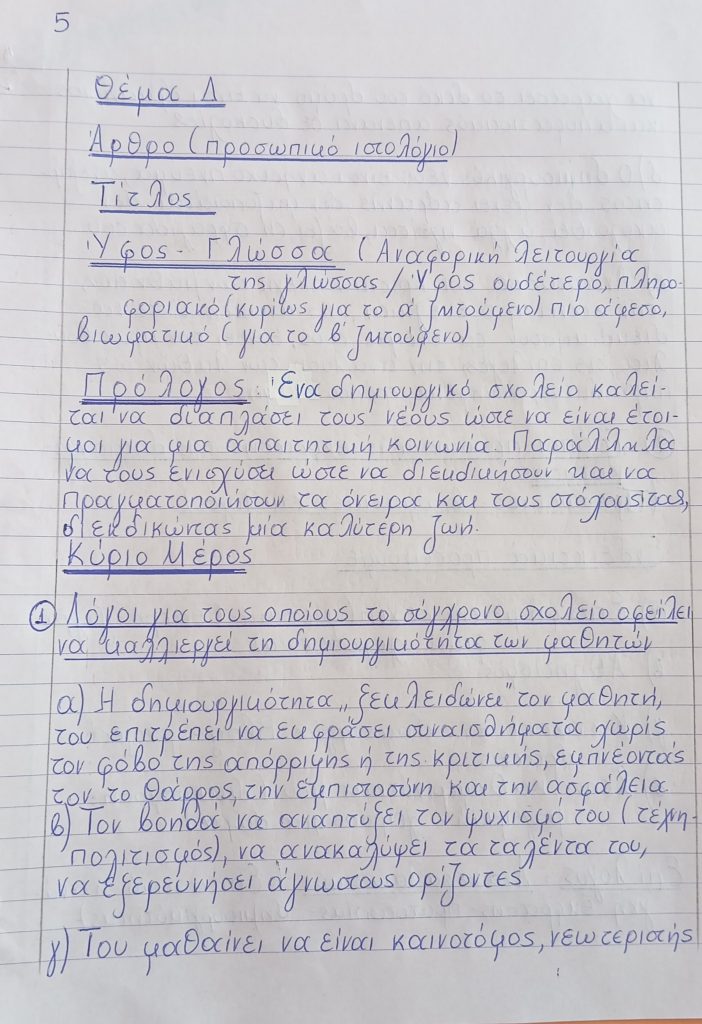 5
Θέμα Δ
Άρθρο (προσωπικό ιστολόγιο)
Τίτλος
Ύφος - Γλώσσα (Αναφορική λειτουργία
της γλώσσας / Ύφος ουδέτερο, πληρο-
φοριακό (κυρίως για το α' ζητούμενο) πιο άμεσο,
βιωματικό (για το β' ζητούμενο)
Πρόλογος: Ένα δημιουργικό σχολείο καλεί-
ται να διαπλάσει τους νέους ώστε να είναι έτοι-
μοι για μια απαιτητική κοινωνία. Παράλληλα
να τους ενισχύσει ώστε να διεκδικήσουν και να
πραγματοποιήσουν τα όνειρα και τους στόχους τους,
διεκδικώντας μία καλύτερη ζωή.
Κύριο Μέρος
① Λόγοι για τους οποίους το σύγχρονο σχολείο οφείλει
να καλλιεργεί τη δημιουργικότητα των μαθητών
α) Η δημιουργικότητα „ξεκλειδώνει" τον μαθητή,
του επιτρέπει να εκφράσει συναισθήματα χωρίς
τον φόβο της απόρριψης ή της κριτικής, εμπνέοντάς
τον το θάρρος, την εμπιστοσύνη και την ασφάλεια
β) Τον βοηθά να αναπτύξει τον ψυχισμό του (τέχνη-
πολιτισμός), να ανακαλύψει τα ταλέντα του,
να εξερευνήσει άγνωστους ορίζοντες
γ) Του μαθαίνει να είναι καινοτόμος, νεωτεριστής